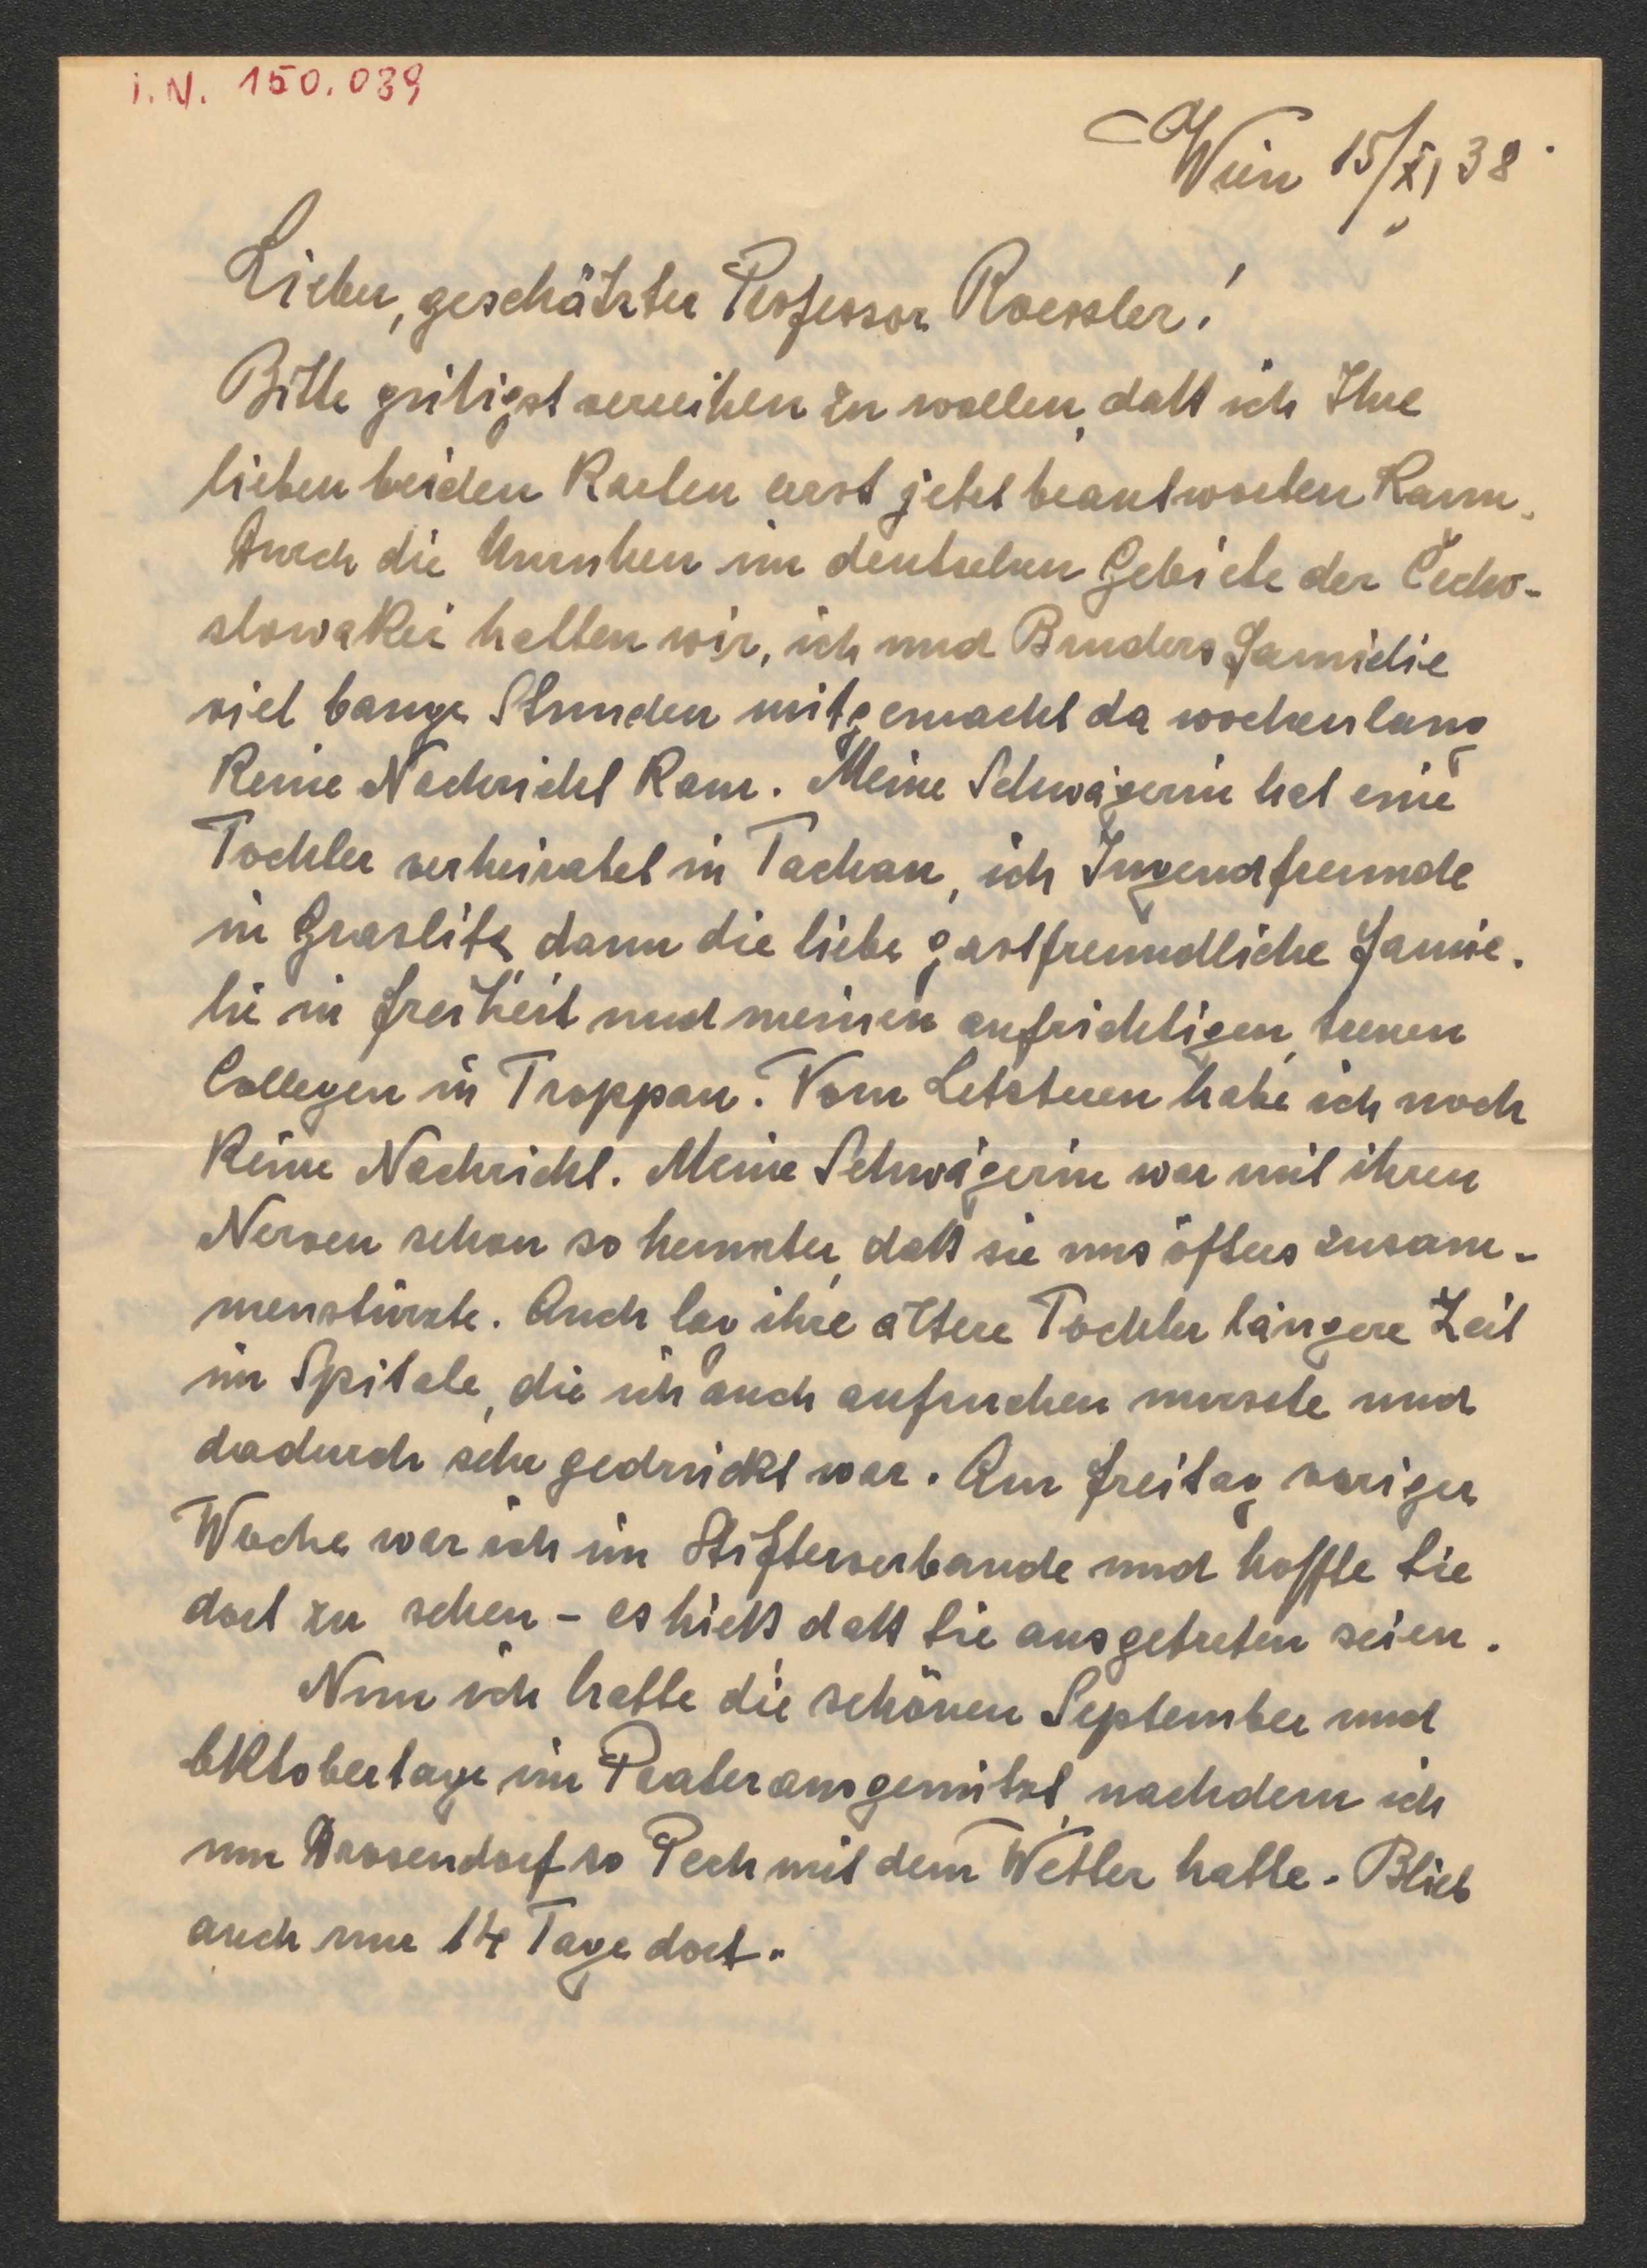 I.N. 150.039
Wien 15/XI 38.
Lieber, geschätzter Professor Roessler!
Bitte gütigst verzeihen zu wollen, daß ich Ihre
lieben beiden Karten erst jetzt beantworten kann.
Durch die Unruhen im deutschen Gebiete der Čecho-
slowakei hatten wir, ich und Bruders Familie
viel bange Stunden mitgemacht da wochenlang
keine Nachricht kam. Meine Schwägerin hat eine
Tochter verheiratet in Tachau, ich Jugendfreunde
in Graslitz dann die liebe gastfreundliche Famie-
lie in Freiheit und meinen aufrichtigen, treuen
Collegen in Troppau. Vom Letzteren habe ich noch
keine Nachricht. Meine Schwägerin war mit ihren
Nerven schon so herunter, daß sie uns öfters zusam-
menstürzte. Auch lag ihre ältere Tochter längere Zeit
im Spitale, die ich auch aufsuchen musste und
dadurch sehr gedrückt war. Am Freitag voriger
Woche war ich im Stifterverbande und hoffte Sie
dort zu sehen - es hieß daß Sie ausgetreten seien.
Nun ich hatte die schönen September und
Oktobertage im Prater ausgenützt, nachdem ich
um Drosendorf so Pech mit dem Wetter hatte. Blieb
auch nur 14 Tage dort.